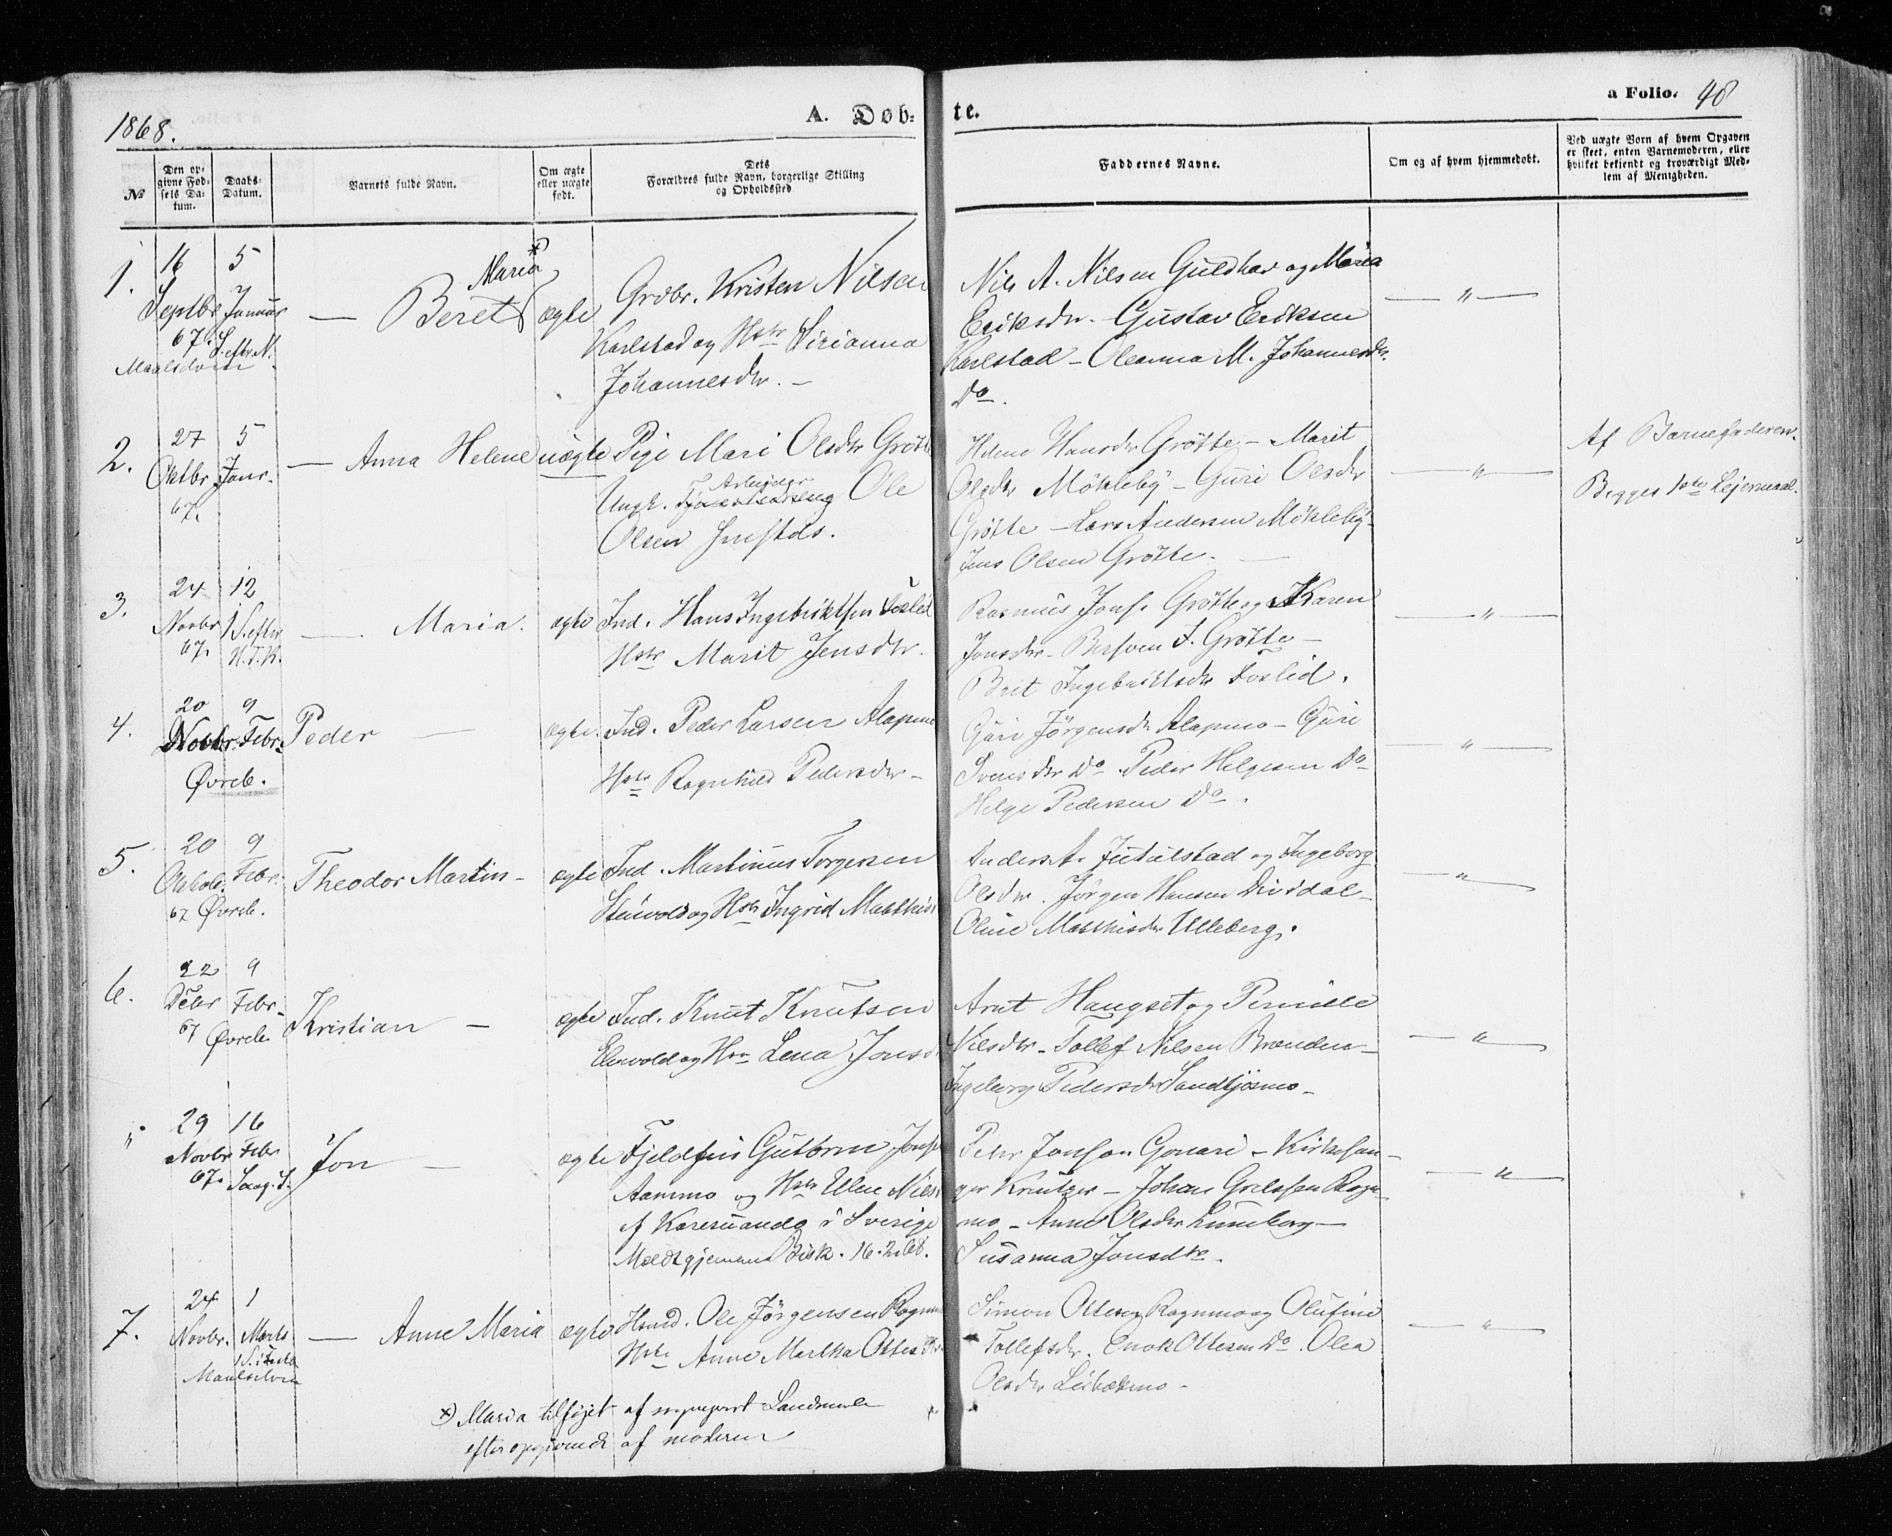 1868.
A. Døb-
te.
a Folio. 48
№
Den op-
givne Fød-
sels Da-
tum.
Daabs-
Datum.
Barnets fulde Navn.
Om ægte
eller uægte
født.
Dets
Forældres fulde Navn, borgerlige Stilling
og Opholdssted.
Faddernes Navne.
Om og af hvem hjemmedøbt.
Ved uægte Børn af hvem Opgaven
er skeet, enten Barnemoderen, eller
hvilket bekjendt og troværdigt Med-
lem af Menigheden.
1.
16 Septbr 67.
5 Januar S. eftr. N.
— Beret Maria *)
ægte
Grdbr. Kristen Nilsen
Karlstad og Hstr Sirianna
Johannesdtr. —
Nils A. Nilsen Guldhav og Maria
Eriksdr. — Gustav Eriksen
Karlstad — Oleanna M. Johannesdr.
Do.
— " —
2.
27 Oktbr 67.
5 Janr.
— Anna Helene
uægte
Pige Mari Olsdtr Grøtte
Ungk. Arbeider Ole
Olsen
Helene Hansdtr Grøtte — Marit
Olsdtr Møkleby — Guri Olsdtr
Grøtte — Lars Andersen Møkleby
Jens Olsen Grøtte. —
— " —
Af Barnefaderen.
Begges 1ste Lejermaal.
3.
24 Novbr 67.
12 1 S. eftr H. T. K.
— Maria.
ægte
Ind. Hans Ingebriktsen Foslid
Hstr Marit Jensdtr.
Rasmus Jons. Grøtte og Karen
Jonsdtr — Bersven J. Grøtte —
Brit Ingebriktsdtr Foslid.
— " —
4.
20 Novbr.
9 Febr.
Øvreb.
Peder —
ægte.
Ind. Peder Larsen Alapmo
Hstr Ragnhild Pedersdtr —
Guri Jørgensdr Alapmo — Guri
Svensdtr Do Peder Helgesen Do
Helge Pedersen Do.
— " —
5.
20 Oktob. 67
9 Febr.
Øvreb.
Theodor Martin —
ægte
Ind. Martinus Torgersen
og Hstr Ingrid Matthis
Anders A. Jutulstad og Ingeborg
Olsdtr. Jørgen Hansen Dividal —
Oline Matthisdtr Ulleberg.
— " —
6.
22 Debr 67
9 Febr.
Øvreb.
Kristian —
ægte
Ind. Knut Knutsen
Elvevold og Hstr Lena Jonsd
Arnt Haugset og Pernille
Nilsdtr — Tollef Nilsen Brænden —
Ingeborg Pedersdtr
— " —
"
29 Novbr 67.
16 Febr
Jon —
ægte
Fjeldfin Guttorm Jonsen
Aanmo og Hstr Ellen Nilsd
af Karesuando i Sverige
16. 2. 68.
Peder Jonsson — Kirkesan-
ger Kreutzer — Johan Rogn
mo — Anne Olsdtr —
Susanna Jonsdtr.
— " —
7.
24 Novbr.
1 Marts
1 S. i Faste
Maalselven
— Anne Maria
ægte
Husmd. Ole Jørgensen Rognmo
Hstr Anne Martha Ottesdtr
Simon Ottesen Rognmo og Olufine
Tollefsdtr. Enok Ottesen Do. Olea
Olsdtr
— " —
*) Maria tilføjet af
efter opgivende af moderen